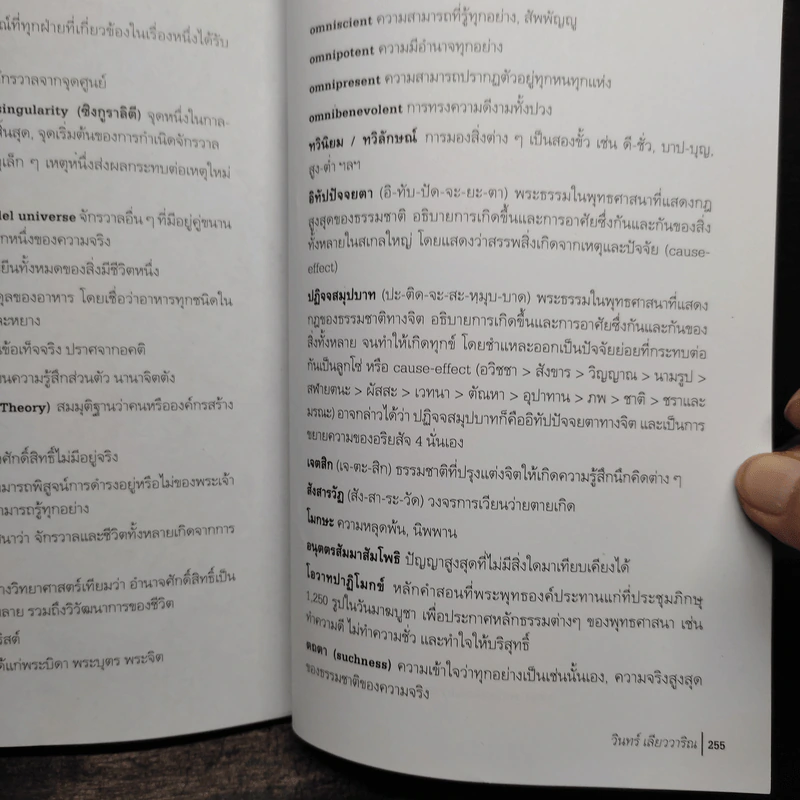 ณ์ที่ทุกฝ่ายที่เกี่ยวข้องในเรื่องหนึ่งได้รับ
จักรวาลจากจุดศูนย์
singularity (ซิงกูราลิตี) จุดหนึ่งในกาล-
สิ้นสุด, จุดเริ่มต้นของการกำเนิดจักรวาล
เล็ก ๆ เหตุหนึ่งส่งผลกระทบต่อเหตุใหม่
lel universe จักรวาลอื่น ๆ ที่มีอยู่คู่ขนาน
กหนึ่งของความจริง
ยีนทั้งหมดของสิ่งมีชีวิตหนึ่ง
ดุลของอาหาร โดยเชื่อว่าอาหารทุกชนิดใน
ละหยาง
ข้อเท็จจริง ปราศจากอคติ
นความรู้สึกส่วนตัว นานาจิตตัง
Theory) สมมุติฐานว่าคนหรือองค์กรสร้าง
ศักดิ์สิทธิ์ไม่มีอยู่จริง
ามารถพิสูจน์การดำรงอยู่หรือไม่ของพระเจ้า
ามารถรู้ทุกอย่าง
สนาว่า จักรวาลและชีวิตทั้งหลายเกิดจากการ
างวิทยาศาสตร์เทียมว่า อำนาจศักดิ์สิทธิ์เป็น
ลาย รวมถึงวิวัฒนาการของชีวิต
ริสต์
ด้แก่พระบิดา พระบุตร พระจิต
omniscient ความสามารถที่รู้ทุกอย่าง, สัพพัญญู
omnipotent ความมีอำนาจทุกอย่าง
omnipresent ความสามารถปรากฏตัวอยู่ทุกหนทุกแห่ง
omnibenevolent การทรงความดีงามทั้งปวง
ทวินิยม / ทวิลักษณ์ การมองสิ่งต่าง ๆ เป็นสองขั้ว เช่น ดี-ชั่ว, บาป-บุญ,
สูง-ต่ำ ฯลฯ
อิทัปปัจจยตา (อิ-ทับ-ปัด-จะ-ยะ-ตา) พระธรรมในพุทธศาสนาที่แสดงกฎ
สูงสุดของธรรมชาติ อธิบายการเกิดขึ้นและการอาศัยซึ่งกันและกันของสิ่ง
ทั้งหลายในสเกลใหญ่ โดยแสดงว่าสรรพสิ่งเกิดจากเหตุและปัจจัย (cause-
effect)
ปฏิจจสมุปบาท (ปะ-ติด-จะ-สะ-หมุบ-บาด) พระธรรมในพุทธศาสนาที่แสดง
กฎของธรรมชาติทางจิต อธิบายการเกิดขึ้นและการอาศัยซึ่งกันและกันของ
สิ่งทั้งหลาย จนทำให้เกิดทุกข์ โดยชำแหละออกเป็นปัจจัยย่อยที่กระทบต่อ
กันเป็นลูกโซ่ หรือ cause-effect (อวิชชา > สังขาร > วิญญาณ > นามรูป >
สฬายตนะ > ผัสสะ > เวทนา > ตัณหา > อุปาทาน > ภพ > ชาติ > ชราและ
มรณะ) อาจกล่าวได้ว่า ปฏิจจสมุปบาทก็คืออิทัปปัจจยตาทางจิต และเป็นการ
ขยายความของอริยสัจ 4 นั่นเอง
เจตสิก (เจ-ตะ-สิก) ธรรมชาติที่ปรุงแต่งจิตให้เกิดความรู้สึกนึกคิดต่าง ๆ
สังสารวัฏ (สัง-สา-ระ-วัด) วงจรการเวียนว่ายตายเกิด
โมกษะ ความหลุดพ้น, นิพพาน
อนุตตรสัมมาสัมโพธิ ปัญญาสูงสุดที่ไม่มีสิ่งใดมาเทียบเคียงได้
โอวาทปาฏิโมกข์ หลักคำสอนที่พระพุทธองค์ประทานแก่ที่ประชุมภิกษุ
1,250 รูปในวันมาฆบูชา เพื่อประกาศหลักธรรมต่างๆ ของพุทธศาสนา เช่น
ทำความดี ไม่ทำความชั่ว และทำใจให้บริสุทธิ์
ตถตา (suchness) ความเข้าใจว่าทุกอย่างเป็นเช่นนั้นเอง, ความจริงสูงสุด
ของธรรมชาติของความจริง
วินทร์ เลียววาริณ 255